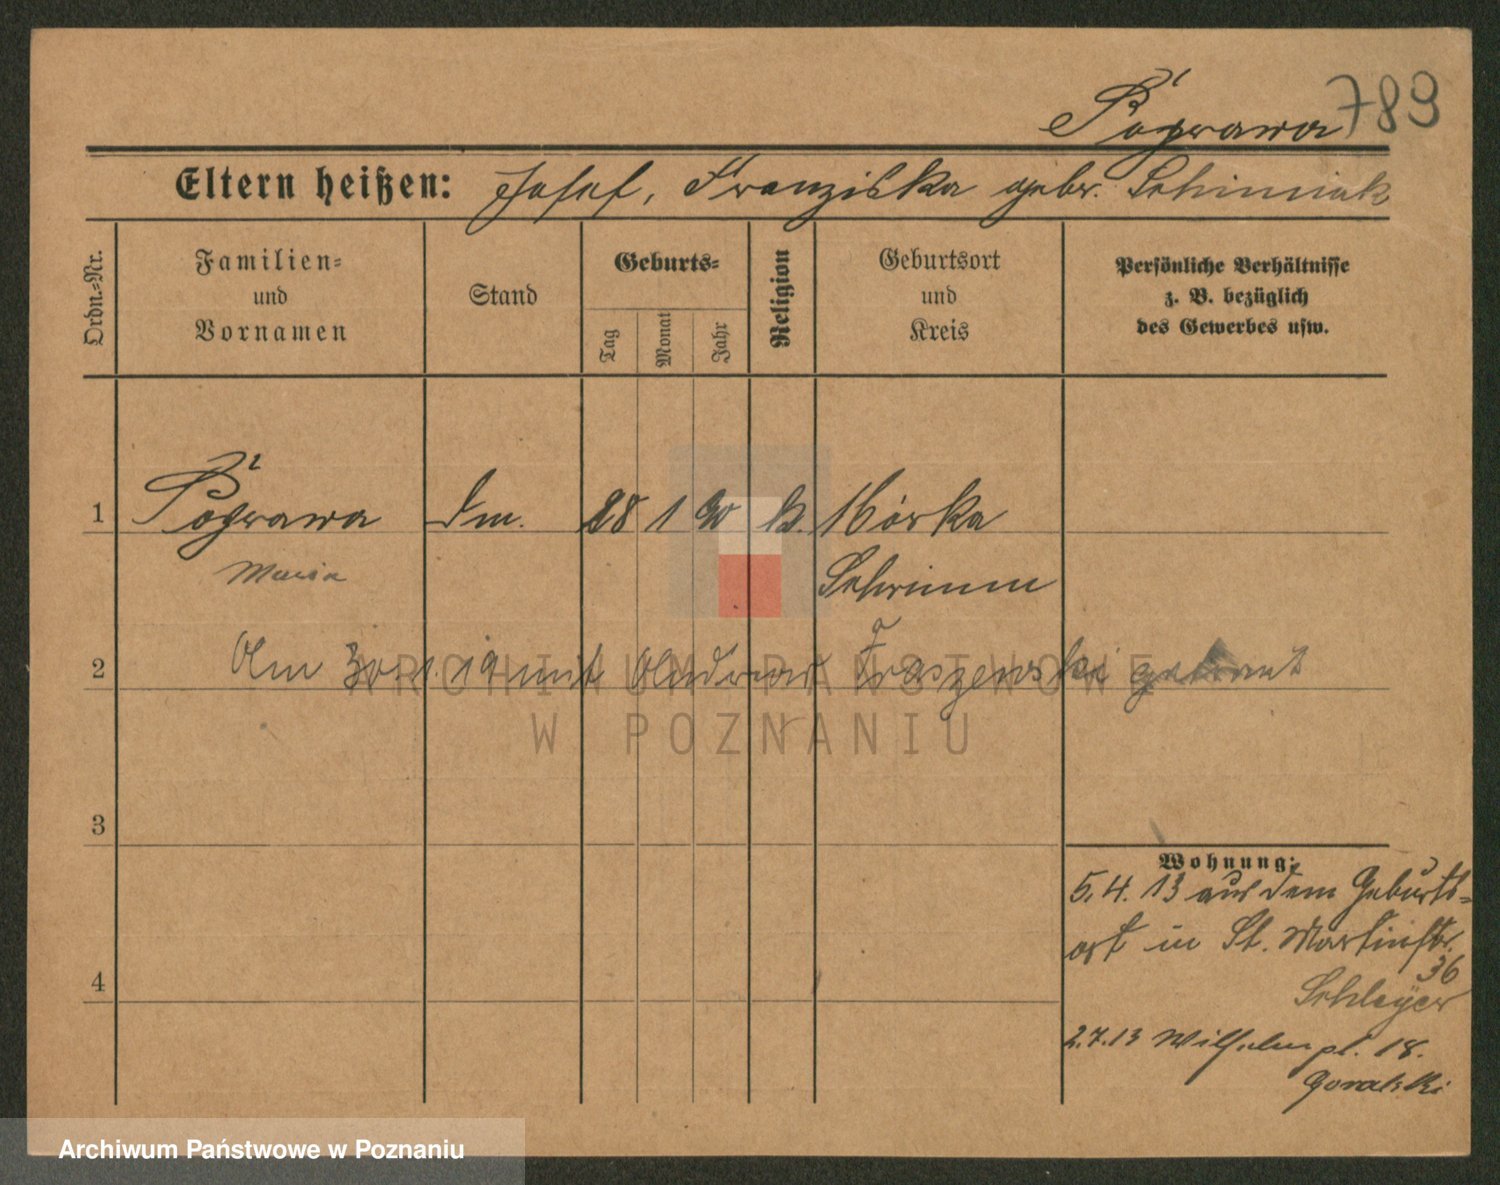 Pograwa 789
Eltern heißen: Josef, Franziska gebr. Schimiak
Ordn.-Nr.
Familien- und Vornamen
Stand
Geburts-
Tag
Monat
Jahr
Religion
Geburtsort und Kreis
Persönliche Verhältnisse z. B. bezüglich des Gewerbes usw.
1 Pograwa Dm. 28 1 90 k. Mórka
Maria Schrimm
2 Am 30. 1. 19 mit Andreas getraut
ARCHIWUM PAŃSTWOWE
W POZNANIU
3
Wohnung:
5.4.13 aus dem Geburts-
ort in St. Martinstr.
36
Schleyer
4
2.7.13 Wilhelmpl. 18.
Goralski
Archiwum Państwowe w Poznaniu